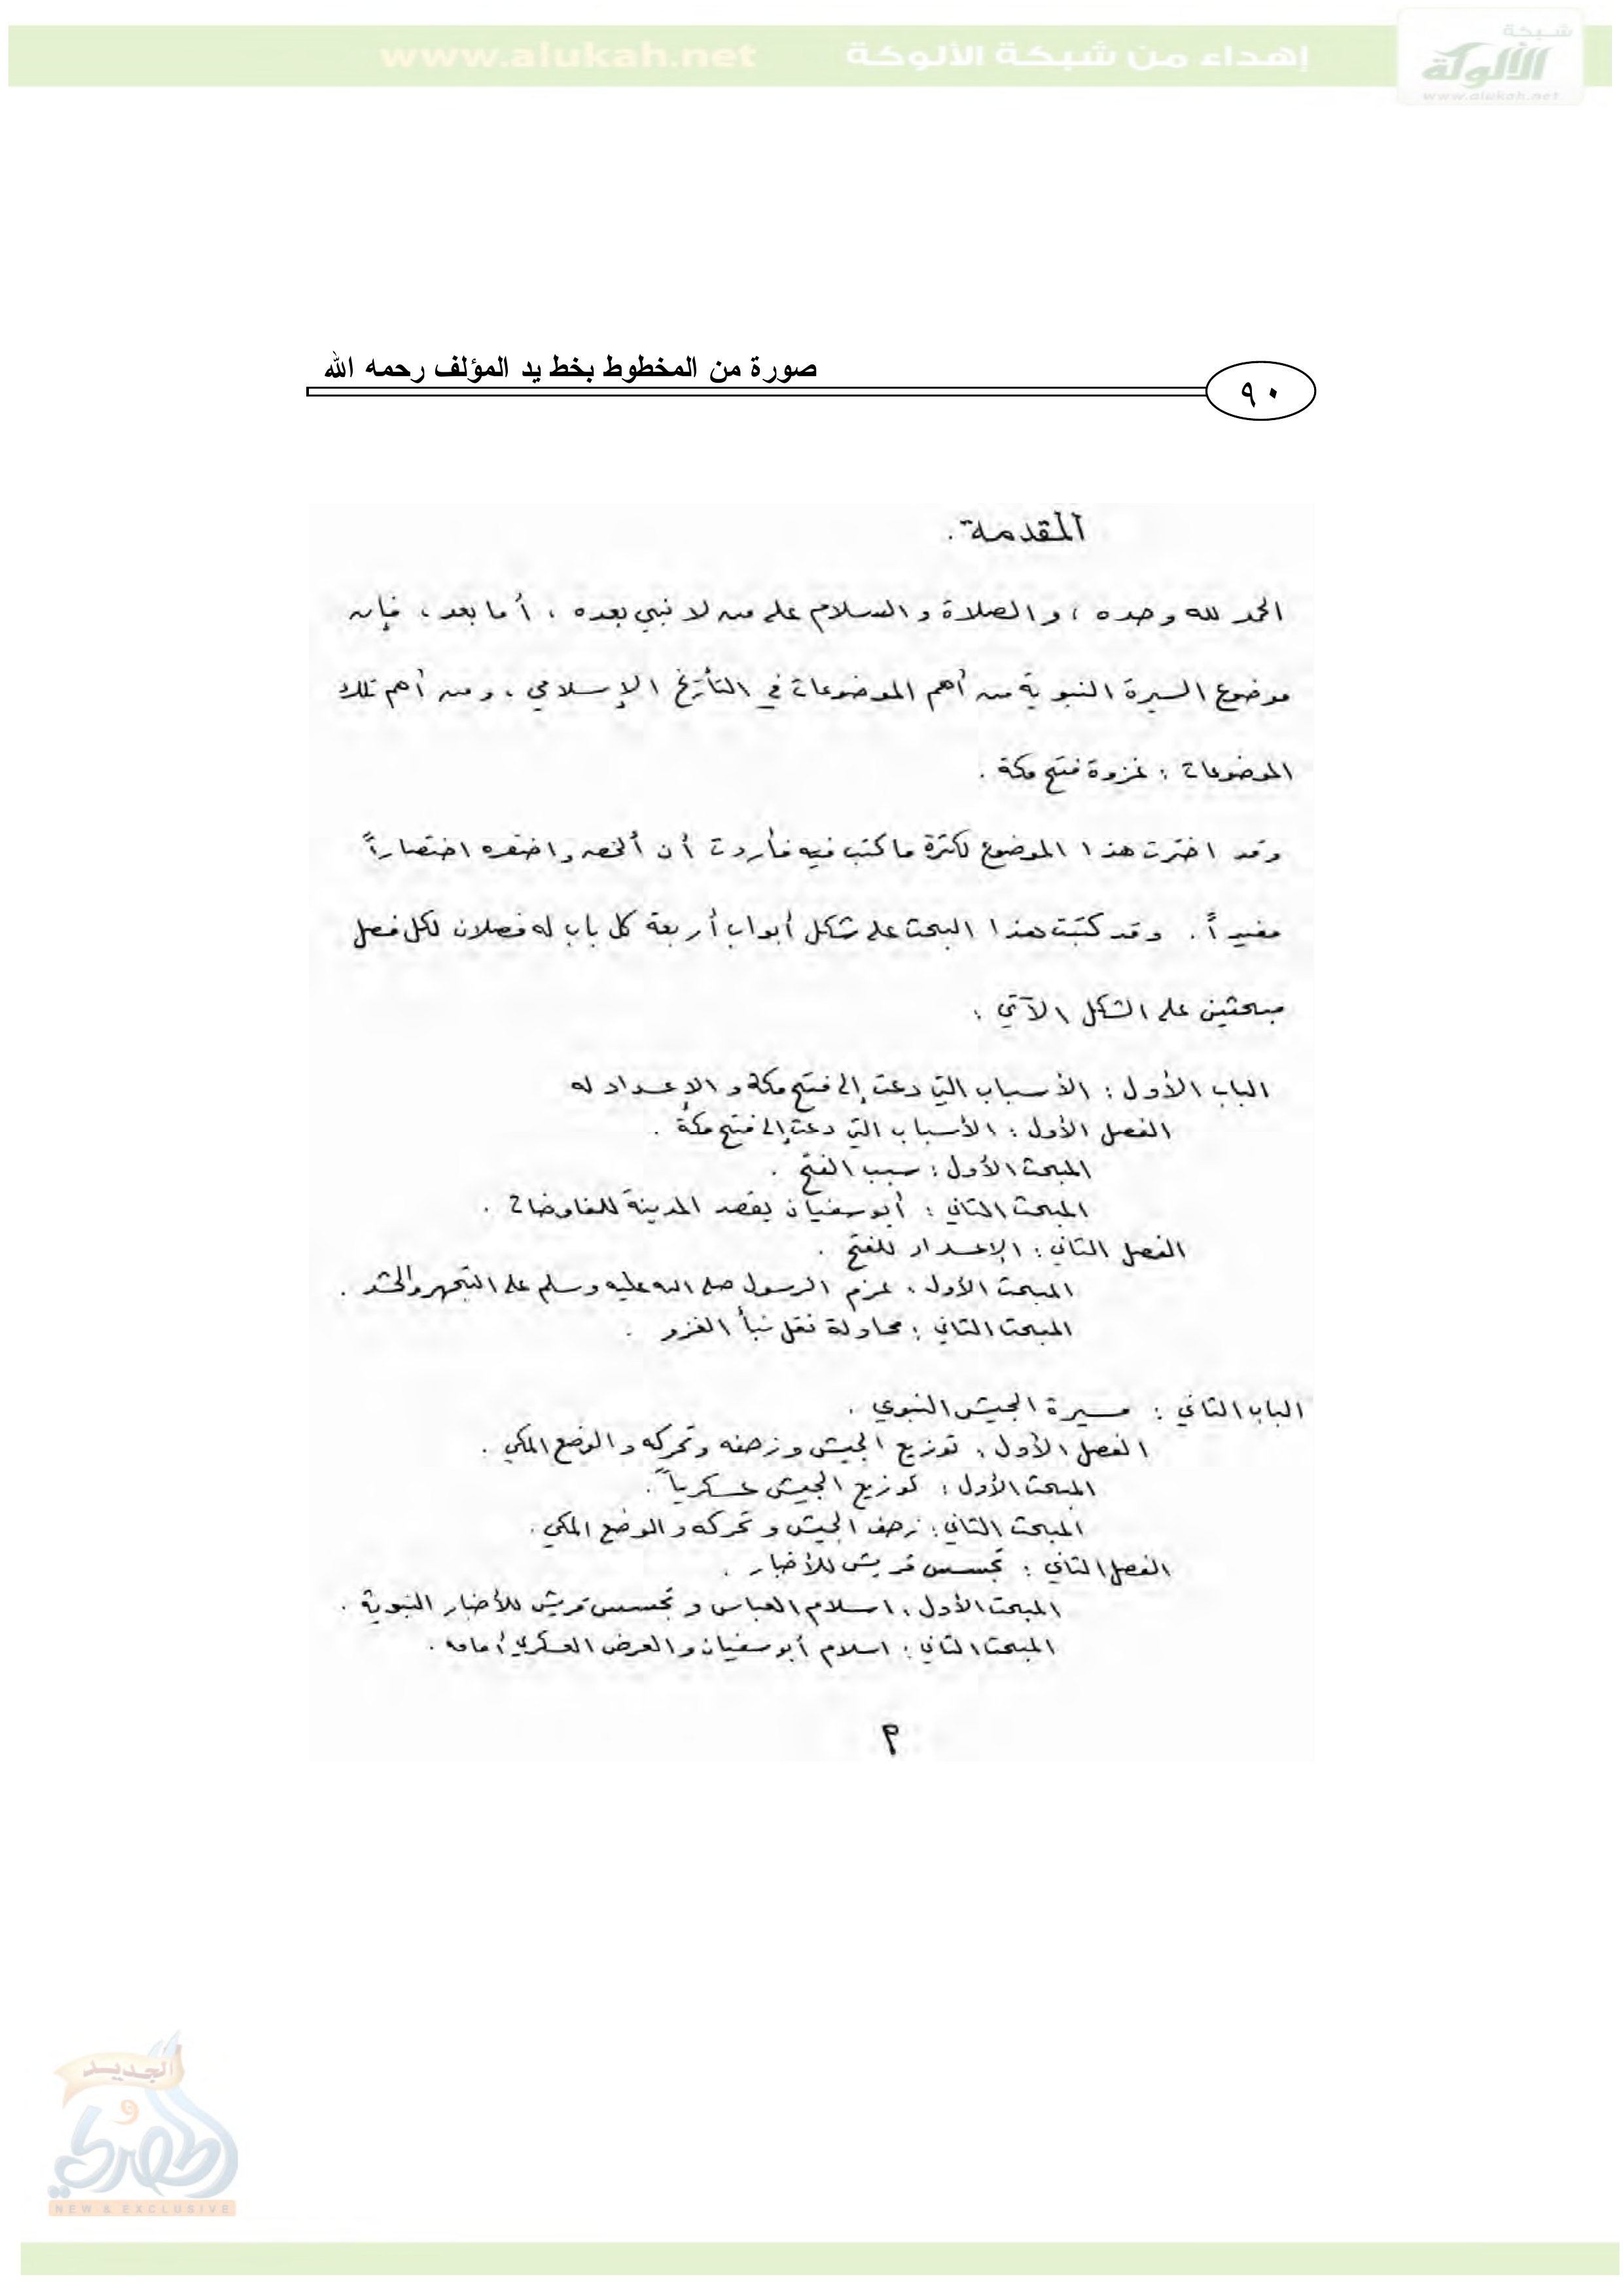 شبكة
الألوكة
www.alukah.net
إهداء من شبكة الألوكة www.alukah.net
صورة من المخطوط بخط يد المؤلف رحمه الله
٩٠
المقدمة.
الحمد لله وحده ، والصلاة والسلام على من لا نبي بعده ، أما بعد ، فإن
موضوع السيرة النبوية من أهم الموضوعات في التأريخ الإسلامي ، ومن أهم تلك
الموضوعات : غزوة فتح مكة .
وقد اخترت هذا الموضوع لكثرة ما كتب فيه فأردت أن ألخصه واختصره اختصاراً
مفيداً . وقد كتبت هذا البحث على شكل أبواب أربعة كل باب له فصلان لكل فصل
مبحثين على الشكل الآتي :
الباب الأول : الأسباب التي دعت إلى فتح مكة والإعداد له
الفصل الأول : الأسباب التي دعت إلى فتح مكة .
المبحث الأول : سبب الفتح .
المبحث الثاني : أبو سفيان يقصد المدينة للمفاوضات .
الفصل الثاني : الإعداد للفتح .
المبحث الأول : عزم الرسول صلى الله عليه وسلم على التجهر والحشد .
المبحث الثاني : محاولة نقل نبأ الغزو .
الباب الثاني : مسيرة الجيش النبوي .
الفصل الأول : توزيع الجيش وزحفه وتحركه والوضع المكي .
المبحث الأول : توزيع الجيش عسكرياً .
المبحث الثاني : زحف الجيش وتحركه والوضع المكي .
الفصل الثاني : تجسس قريش للأخبار .
المبحث الأول : اسلام العباس وتجسس قريش للأخبار النبوية .
المبحث الثاني : اسلام أبو سفيان والعرض العسكري أمامه .
٢
الجديد
و
الحصري
NEW & EXCLUSIVE